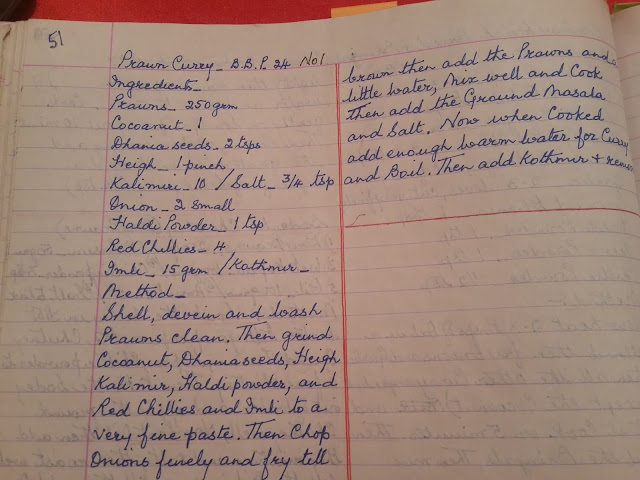 51
Prawn Curry_ B.B.P. 24 No1
Ingredients_
Prawns_ 250grm
Cocoanut_ 1
Dhania seeds_ 2 tsps
Heigh_ 1 pinch
Kalimiri_ 10 / Salt_ 3/4 tsp
Onion_ 2 small
Haldi Powder_ 1 tsp
Red Chillies_ 4
Imli_ 15 grm / Kothmir_
Method_
Shell, devein and wash
Prawns clean. Then grind
Cocoanut, Dhania seeds, Heigh
Kali mir, Haldi powder, and
Red Chillies and Imli to a
very fine paste. Then Chop
Onions finely and fry tell
brown then add the Prawns and a
little water, Mix well and Cook
Then add the Ground Masala
and Salt. Now when Cooked
add enough warm water for Curry
and Boil. Then add Kothmir +